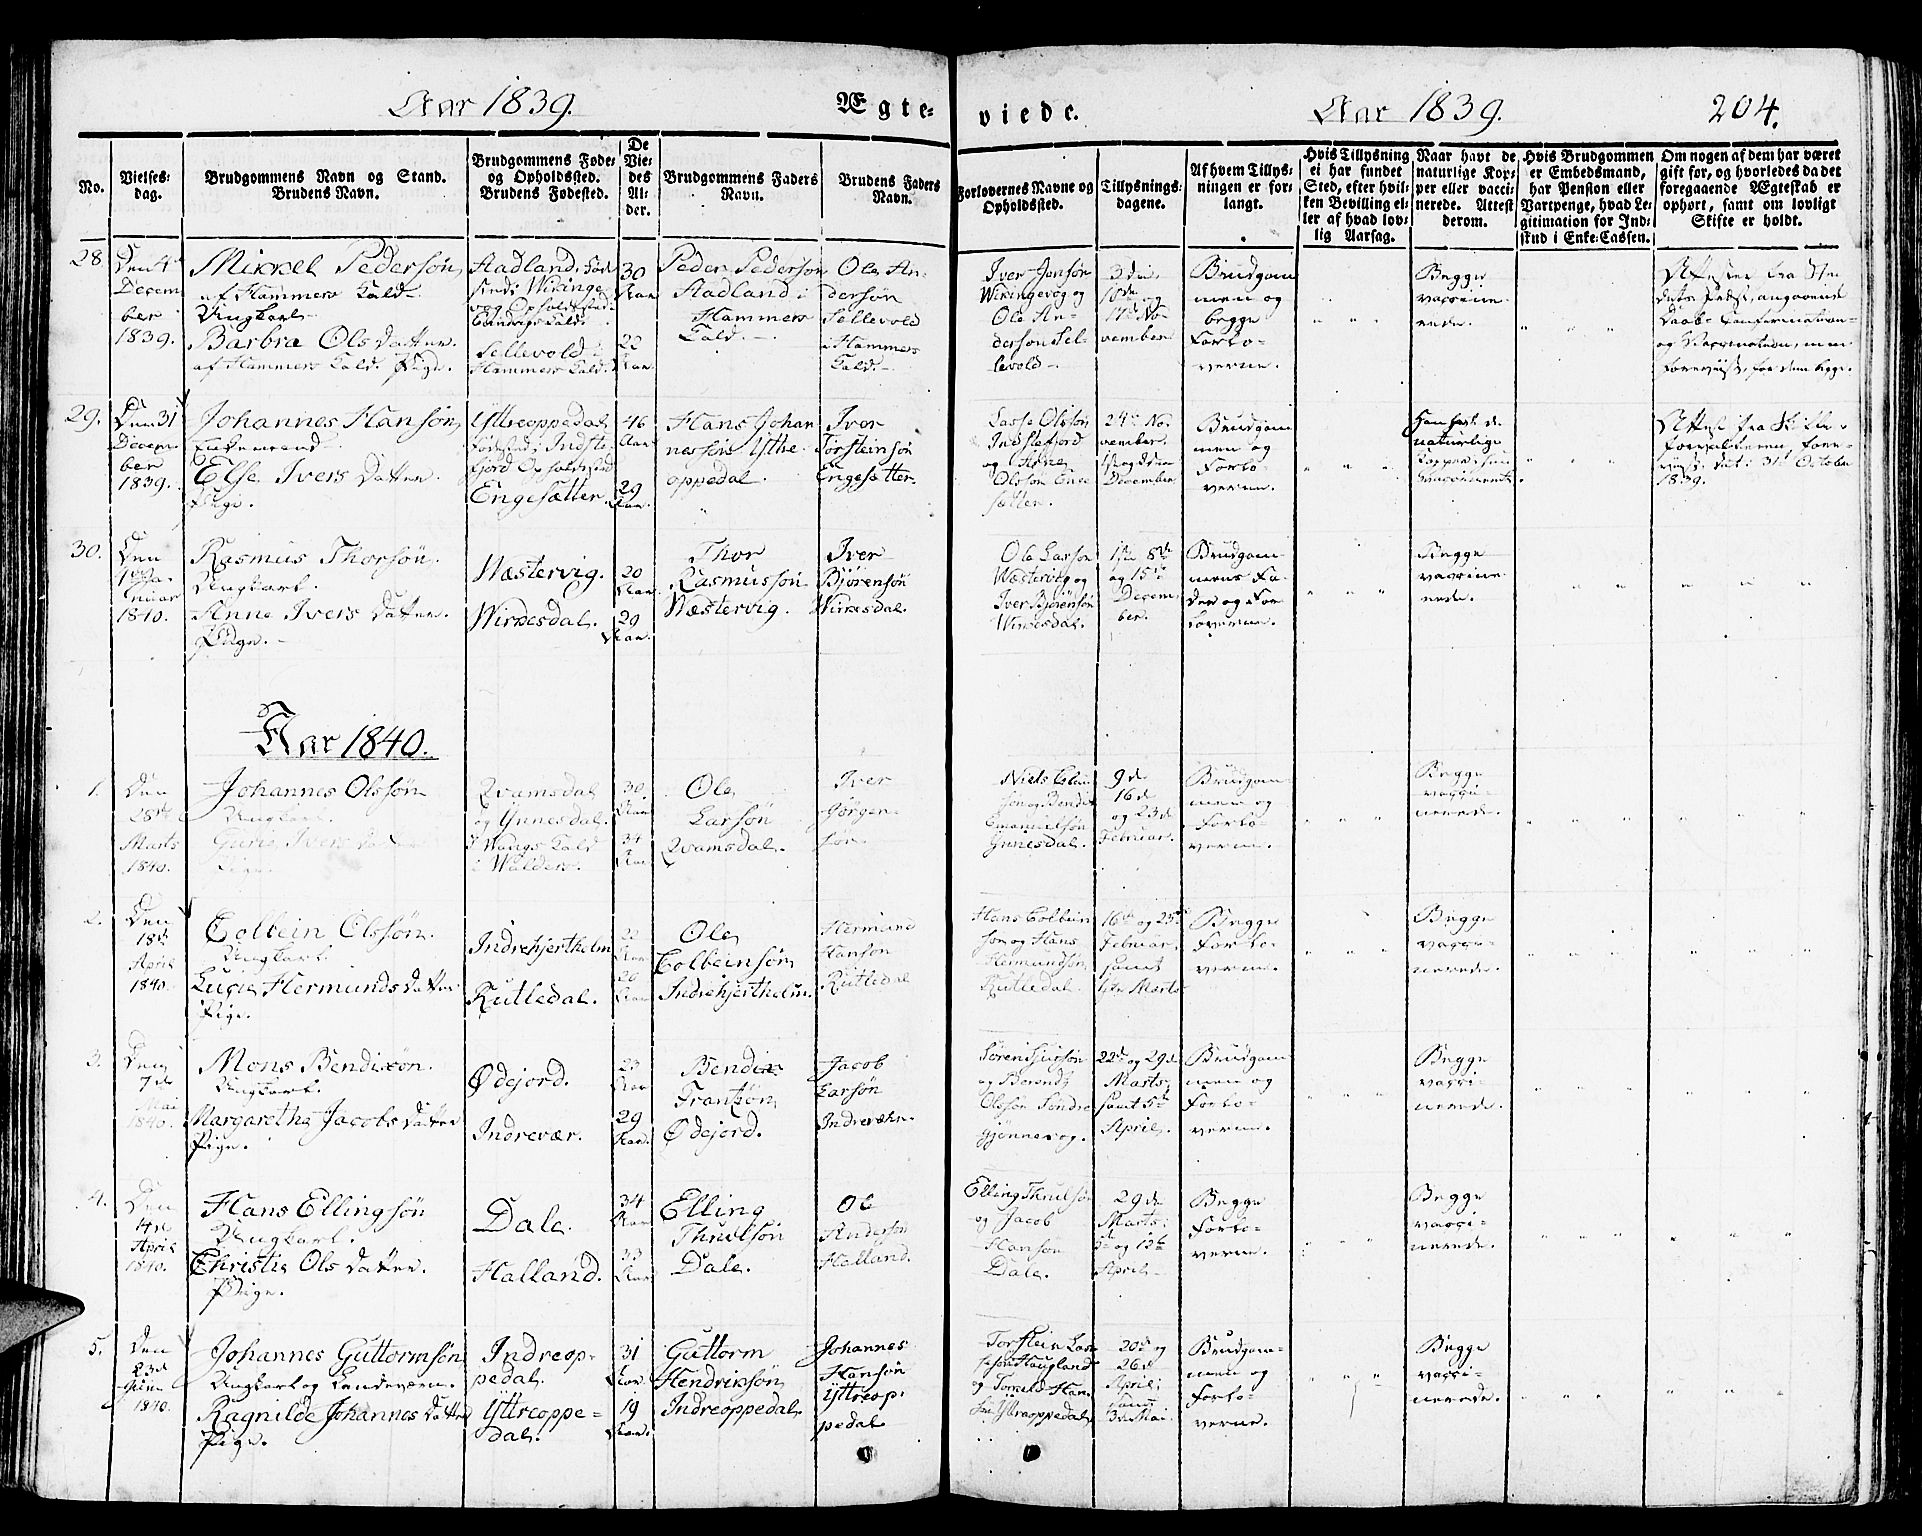 Aar 1839.
Ægte-
viede.
Aar 1839.
204.
No.
Vielses-
dag.
Brudgommens Navn og Stand.
Brudens Navn.
Brudgommens Føde-
og Opholdssted.
Brudens Fødested.
De
Vie-
des
Al-
der.
Brudgommens Faders
Navn.
Brudens Faders
Navn.
Forlovernes Navne og
Opholdssted.
Tillysnings-
dagene.
Af hvem Tillys-
ningen er for-
langt.
Hvis Tillysning
ei har fundet
Sted, efter hvil-
ken Bevilling el-
ler af hvad lov-
lig Aarsag.
Naar havt de
naturlige Kop-
per eller vacci-
nerede. Attest
derom.
Hvis Brudgommen
er Embedsmand,
har Pension eller
Vartpenge, hvad Le-
gitimation for Ind-
skud i Enke-Cassen.
Om nogen af dem har været
gift før, og hvorledes da det
foregaaende Ægteskab er
ophørt, samt om lovligt
Skifte er holdt.
28
Den 4de
Decem
ber
1839.
Mikkel Pedersøn
af Hammers Kald
Ungkarl
Barbra Ols Datter
af Hammers Kald. Pige.
Sellevold i
Hammers Kald.
30
Aar
22
Aar
Peder Pederson
Aadland i
Hammers
Kald.
Ole An-
dersøn
Sellevold
i Hammers
Kald.
Iver Jonsøn
Wikingevog og
Ole An-
derson Sel-
levold
3die,
10de og
17de No
vember
Brudgom
men og
begge
Forlo-
verne.
Begge
vaccine-
rede.
29.
Den 31
Decem
ber
1839.
Johannes Hansøn
Enkemand
Else Ivers Datter
Pige.
Yttreoppedal
Engesætter
46
Aar
29
Aar
Hans Johan
nessøn Ysthe
oppedal.
Iver
Torsteinsøn
Engesætter
Lasse Olsson
Indstefjord
og Arne
Olsson Enge
sætter.
24de No
vember
1ste og 8de
December
Brudgom
men og
Forlo-
verne.
Han havt de
naturlige
Kopper; hun
vaccineret.
31te October
1839.
30.
Den
1ste Ja-
nuar
1840.
Rasmus Thorsøn.
Ungkarl.
Anne Ivers Datter
Pige.
Wæstervig.
Wirkesdal.
20
Aar.
29
Aar.
Thor
Rasmusson
Wæstervig.
Iver
Bjørensøn
Wirkesdal.
Ole Larson
Wæstervig og
Iver Bjørensøn
Wirkesdal.
1ste 8de
og 15de
Decem-
ber.
Brudgom
mens Fa-
der og For
loverne.
Begge
vaccine-
rede.
Aar 1840.
1.
Den
28de
Marts
1840.
Johannes Olssøn
Ungkarl.
Guria Ivers Datter
Pige.
Qvamsdal
og Ynnesdal.
i Wangs Kald
i Walders.
30
Aar
34
Aar
Ole
Larsøn
Qvamsdal.
Iver
Gørgen-
søn
Emanuelsøn
Ynnesdal.
9de
16de
og 23de
Februar.
Brudgom
men og
Forlo-
verne.
Begge
vacci-
nerede.
2.
Den
18de
April
1840.
Colbein Olssøn.
Ungkarl.
Lucie Hermunds Datter
Pige.
Indrehjertholm
Rutledal.
22
Aar
20
Aar
Ole
Colbeinsøn
Indrehjertholm.
Hermund
Hanson
Rutledal
Hans Colbein
søn og Hans
Hermundsøn
Rutledal.
16de og 23de
Februar,
samt
1ste Marts
Begge
Forlo-
verne.
Begge
vacci-
nerede.
3.
Den
7de
Mai
1840.
Mons Bendixøn.
Ungkarl.
Margaretha Jacobs Datter
Pige.
Ødejord.
Indrevær.
23
Aar
29
Aar.
Bendix
Frantzøn
Ødejord.
Jacob
Larsøn
Indrevær.
og Berendt
Olsøn Søndre
gjønnevog.
22de og 29de
Marts,
samt 5te
April.
Brudgom
men og
Forlo-
verne.
Begge
vacci-
nerede.
4.
Den
14de
April
1840.
Hans Ellingsøn
Ungkarl.
Christie Ols Datter.
Pige.
Dale.
Halland.
34
Aar
33
Aar
Elling
Thuelsøn
Dale.
Ole
Anderson
Halland.
Elling Thuelsøn
og Jacob
Hansøn
Dale.
29de
Marts,
5te og 12te
April
Begge
Forlo-
verne.
Begge
vacci-
nerede.
5.
Den
23de
Juni
1840.
Johannes Guttormsøn
Ungkarl og Landeværn.
Ragnilde Johannes Datter
Pige.
Indreop-
pedal.
Yttreoppe-
dal.
31
Aar.
19
Aar.
Guttorm
Hendriksøn
Indreoppedal
Johannes
Hansøn
Yttreop-
pedal
Torstein Las-
sesøn Haugland
Yttreoppedal
20de og
26de
April,
samt
3die Mai.
Brudgom-
men og
Forlo-
verne.
Begge
vacci-
nerede.